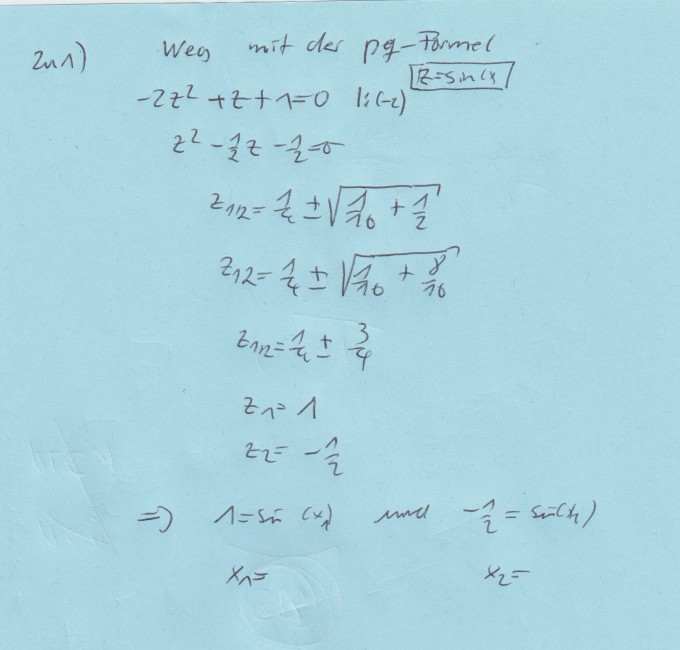 zu 1) Weg mit der pq-Formel
z=sin(x)
-2z² + z + 1 = 0 |:(-2)
z² - 1/2 z - 1/2 = 0
z1/2 = 1/4 ± √(1/16 + 1/2)
z12 = 1/4 ± √(1/16 + 8/16)
z1/2 = 1/4 ± 3/4
z1 = 1
z2 = -1/2
=> 1 = sin (x1) und -1/2 = sin(x)
x1= x2=